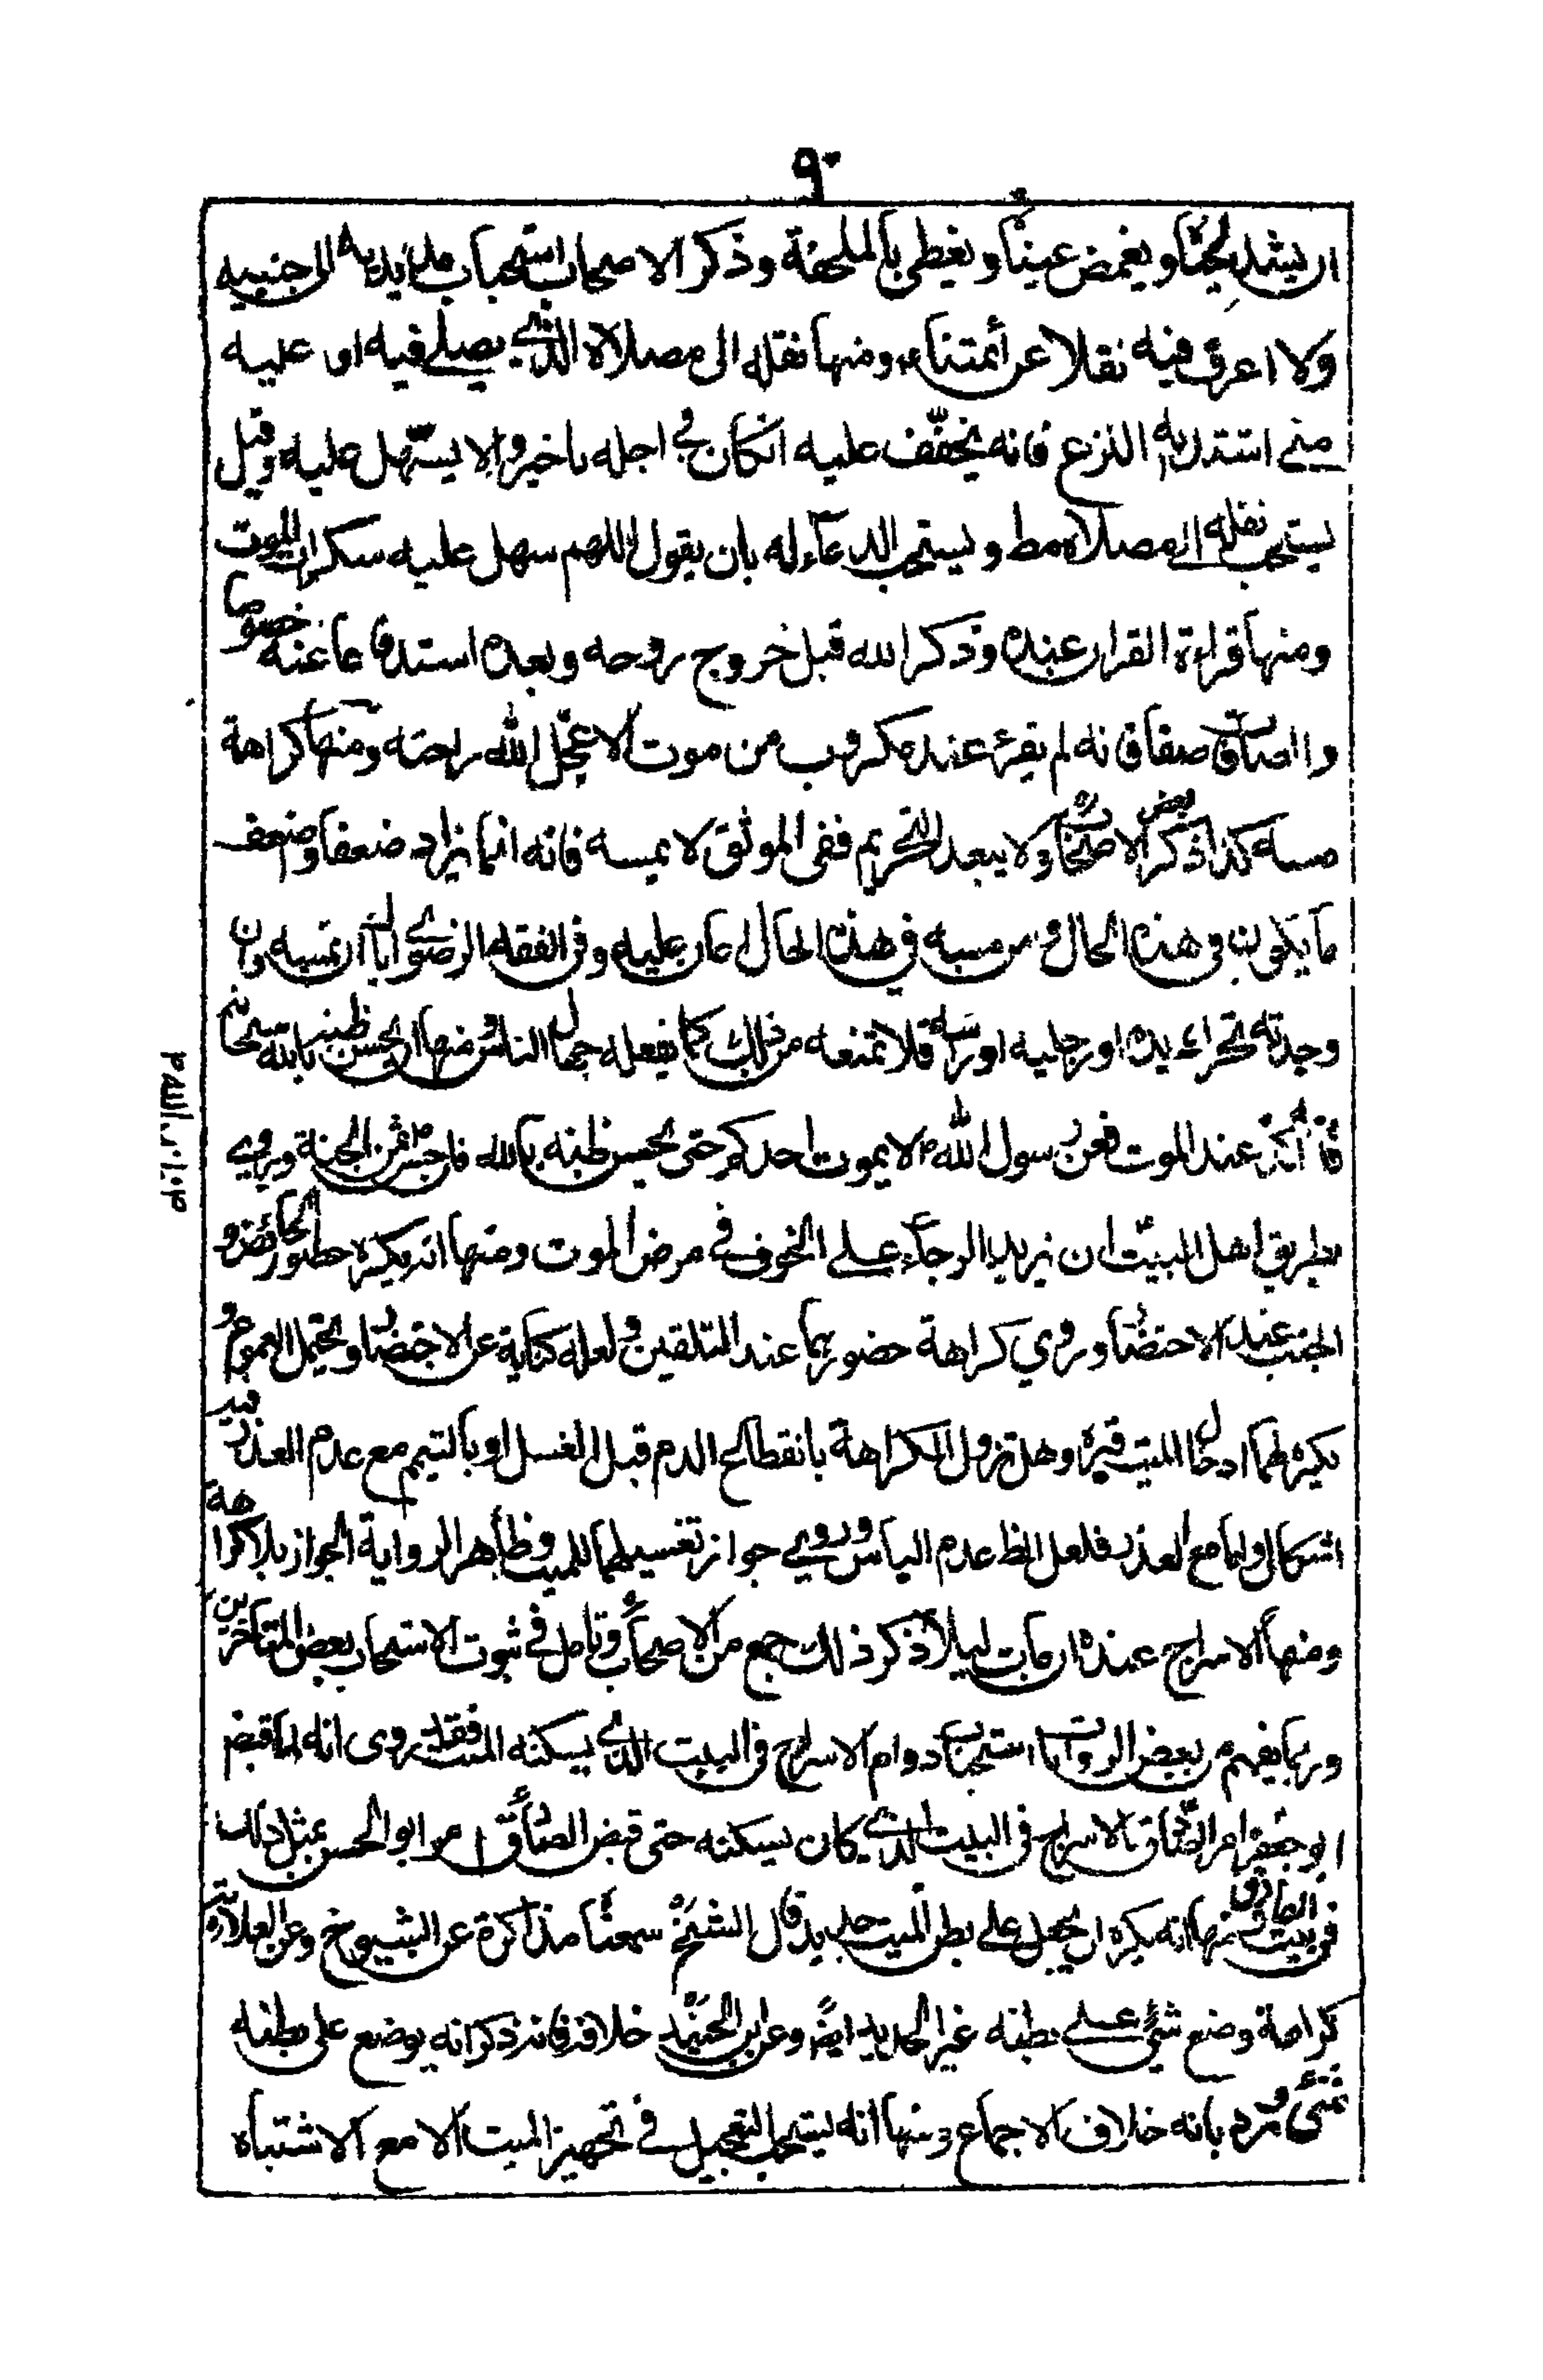 ٩٠
ان يشد لحيتاه و يغمض عيناه و يغطى بالملحفة و ذكر الاصحاب استحباب مد يديه الى جنبيه
ولا اعرف فيه نقلا عن أئمتنا ومنها نقله الى مصلاه الذي يصلي فيه او عليه
متى اشتد به النزع فانه يخفف عليه انكان في اجله تاخير و الا يسهل عليه وقيل
يستحب نقله الى مصلاه مط و يستحب الدعاء له بان يقول اللهم سهل عليه سكرات الموت
ومنها قراءة القران عنده وذكر الله قبل خروج روحه وبعده استدفاعا عنه خصوصا
والصافات صفا فانه لم يقرء عند مكروب من موت الا عجل الله راحته ومنها كراهة
مسه كذا ذكر بعض الاصحاب ولا يبعد التحريم ففى الموثق لا يمسه فانه انما يزاد ضعفا وضعف
ما يكون فى هذه الحال ومن مسه في هذه الحال اعان عليه وفى الفقه الرضوي اياك ان تمسه وان
وجدته يحرك يده او رجليه او راسه فلا تمنعه من ذلك كما يفعله جهال الناس ومنها ان يحسن ظنه بالله سبحانه
فانه اكد عند الموت فعن رسول الله ص لا يموت احدكم حتى يحسن ظنه بالله فان حسن ثمن الجنة وروي
بطريق اهل البيت ان يزيد الرجاء على الخوف في مرض الموت ومنها انه يكره حضور الحائض و
الجنب عند الاحتضار و روي كراهة حضورهما عند التلقين و لعله كناية عن الاحتضار ويحتمل العموم و
يكره لهما ادخال الميت قبره وهل تزول الكراهة بانقطاع الدم قبل الغسل او بالتيمم مع عدم العذر فيه
اشكال واما مع العذر فلعل الظ عدم الباس وروي جواز تغسيلهما للميت وظاهر الرواية الجواز بلا كراهة
ومنها الاسراج عنده ان مات ليلا ذكر ذلك جمع من الاصحاب وتامل في ثبوت الاستحباب بعض المتاخرين
وربما يفهم من بعض الروايات استحباب دوام الاسراج فى البيت الذي يسكنه الميت فقد روى انه لما قبض
ابو جعفر امر الصادق بالاسراج فى البيت الذي كان يسكنه حتى قبض الصادق امر ابو الحسن بمثل ذلك
فى بيت الصادق ومنها انه يكره ان يجعل على بطن الميت حديد قال الشيخ سمعناه مذاكرة عن الشيوخ وعن العلامة
كراهة وضع شئ على بطنه غير الحديد ايض وعن ابن الجنيد خلافه فانه ذكر انه يوضع على بطنه
شئ ورد بانه خلاف الاجماع ومنها انه يستحب التعجيل في تجهيز الميت الا مع الاشتباه